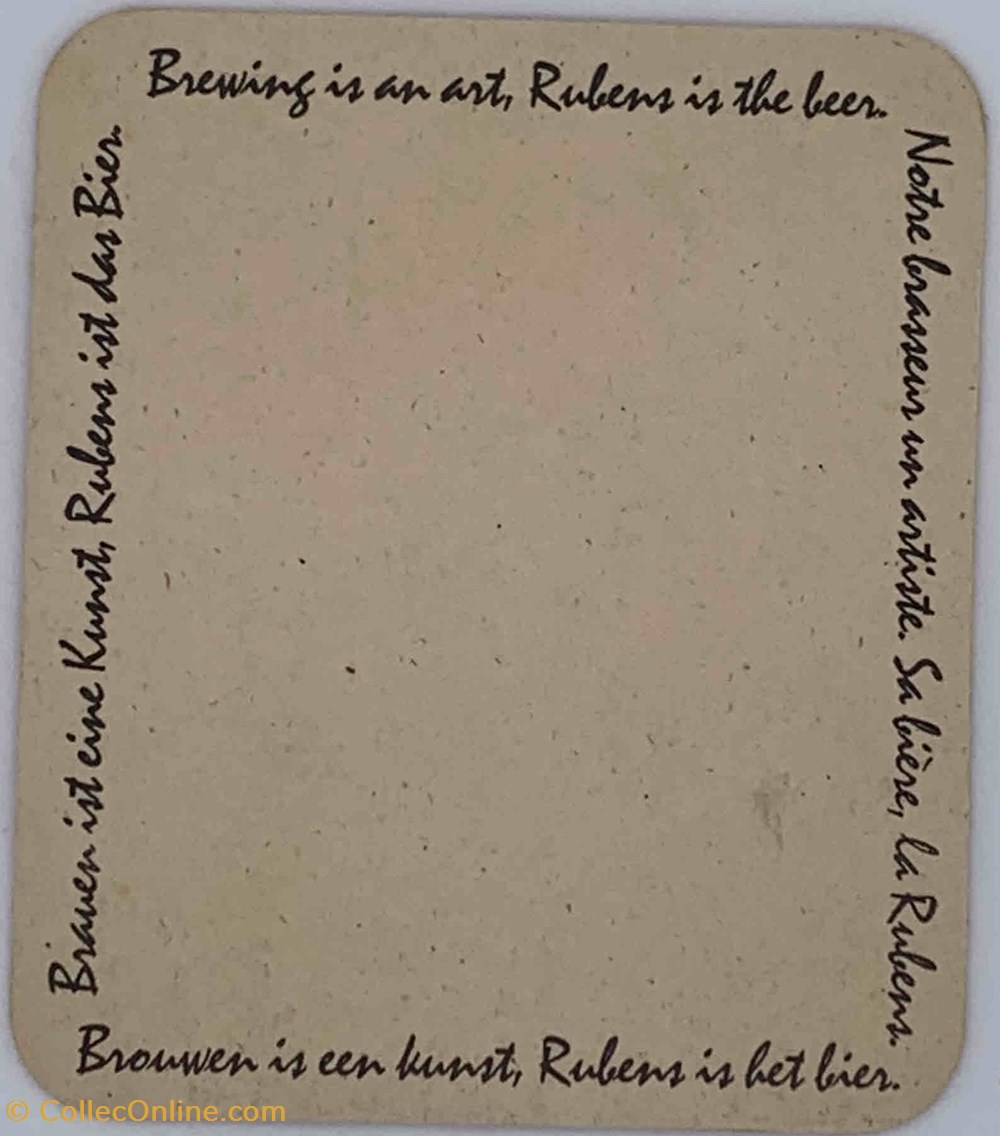 Brewing is an art, Rubens is the beer.
Notre brasseur un artiste. Sa bière, la Rubens.
Brauen ist eine Kunst, Rubens ist das Bier.
Brouwen is een kunst, Rubens is het bier.
© CollecOnline.com